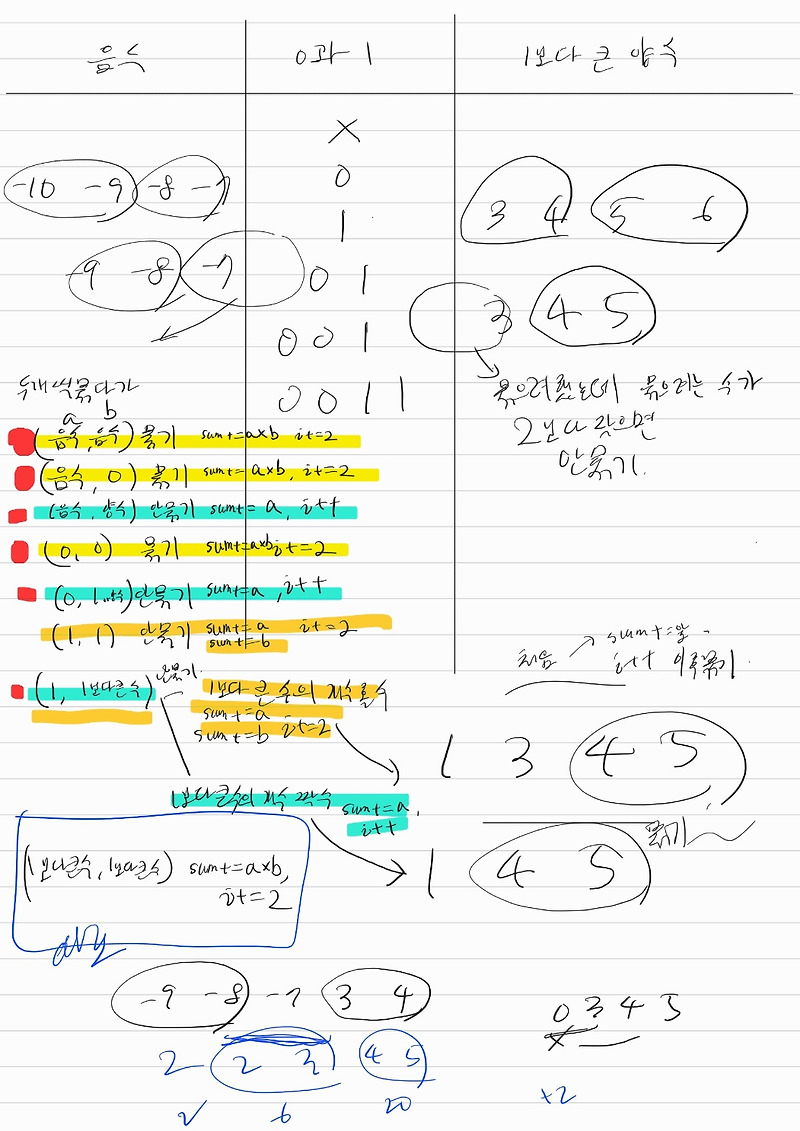 음수 0과 1 1보다 큰 양수
X
-10 -9 -8 -7 0
1 3 4 5 6
-9 -8 -7 0 1
0 0 1 3 4 5
두개씩 묶다가 0 0 1 1
묶으려했는데 묶으려는 수가
2보다 작으면
안묶기.
a b
(음수, 음수) 묶기 sum+=a×b i+=2
(음수, 0) 묶기 sum+= a×b, i+=2
(음수, 양수) 안묶기 sum+= a, i++
(0, 0) 묶기 sum+=a×b i+=2
(0, 1 양수) 안묶기 sum+=a, i++
(1, 1) 안묶기 sum+=a i+=2
sum+=b
처음 sum+=앞
i++ 이후묶기
(1, 1보다큰수) 안묶기
1보다 큰 수의 개수 홀수
sum+=a
sum+=b i+=2
1 3 4 5
1보다큰수의 개수 짝수 sum+=a,
i++
묶기
1 4 5
(1보다큰수, 1보다큰수) sum+=a×b,
i+=2
-9 -8 -7 3 4
0 3 4 5
2 2 3 4 5
2 6 20
+2